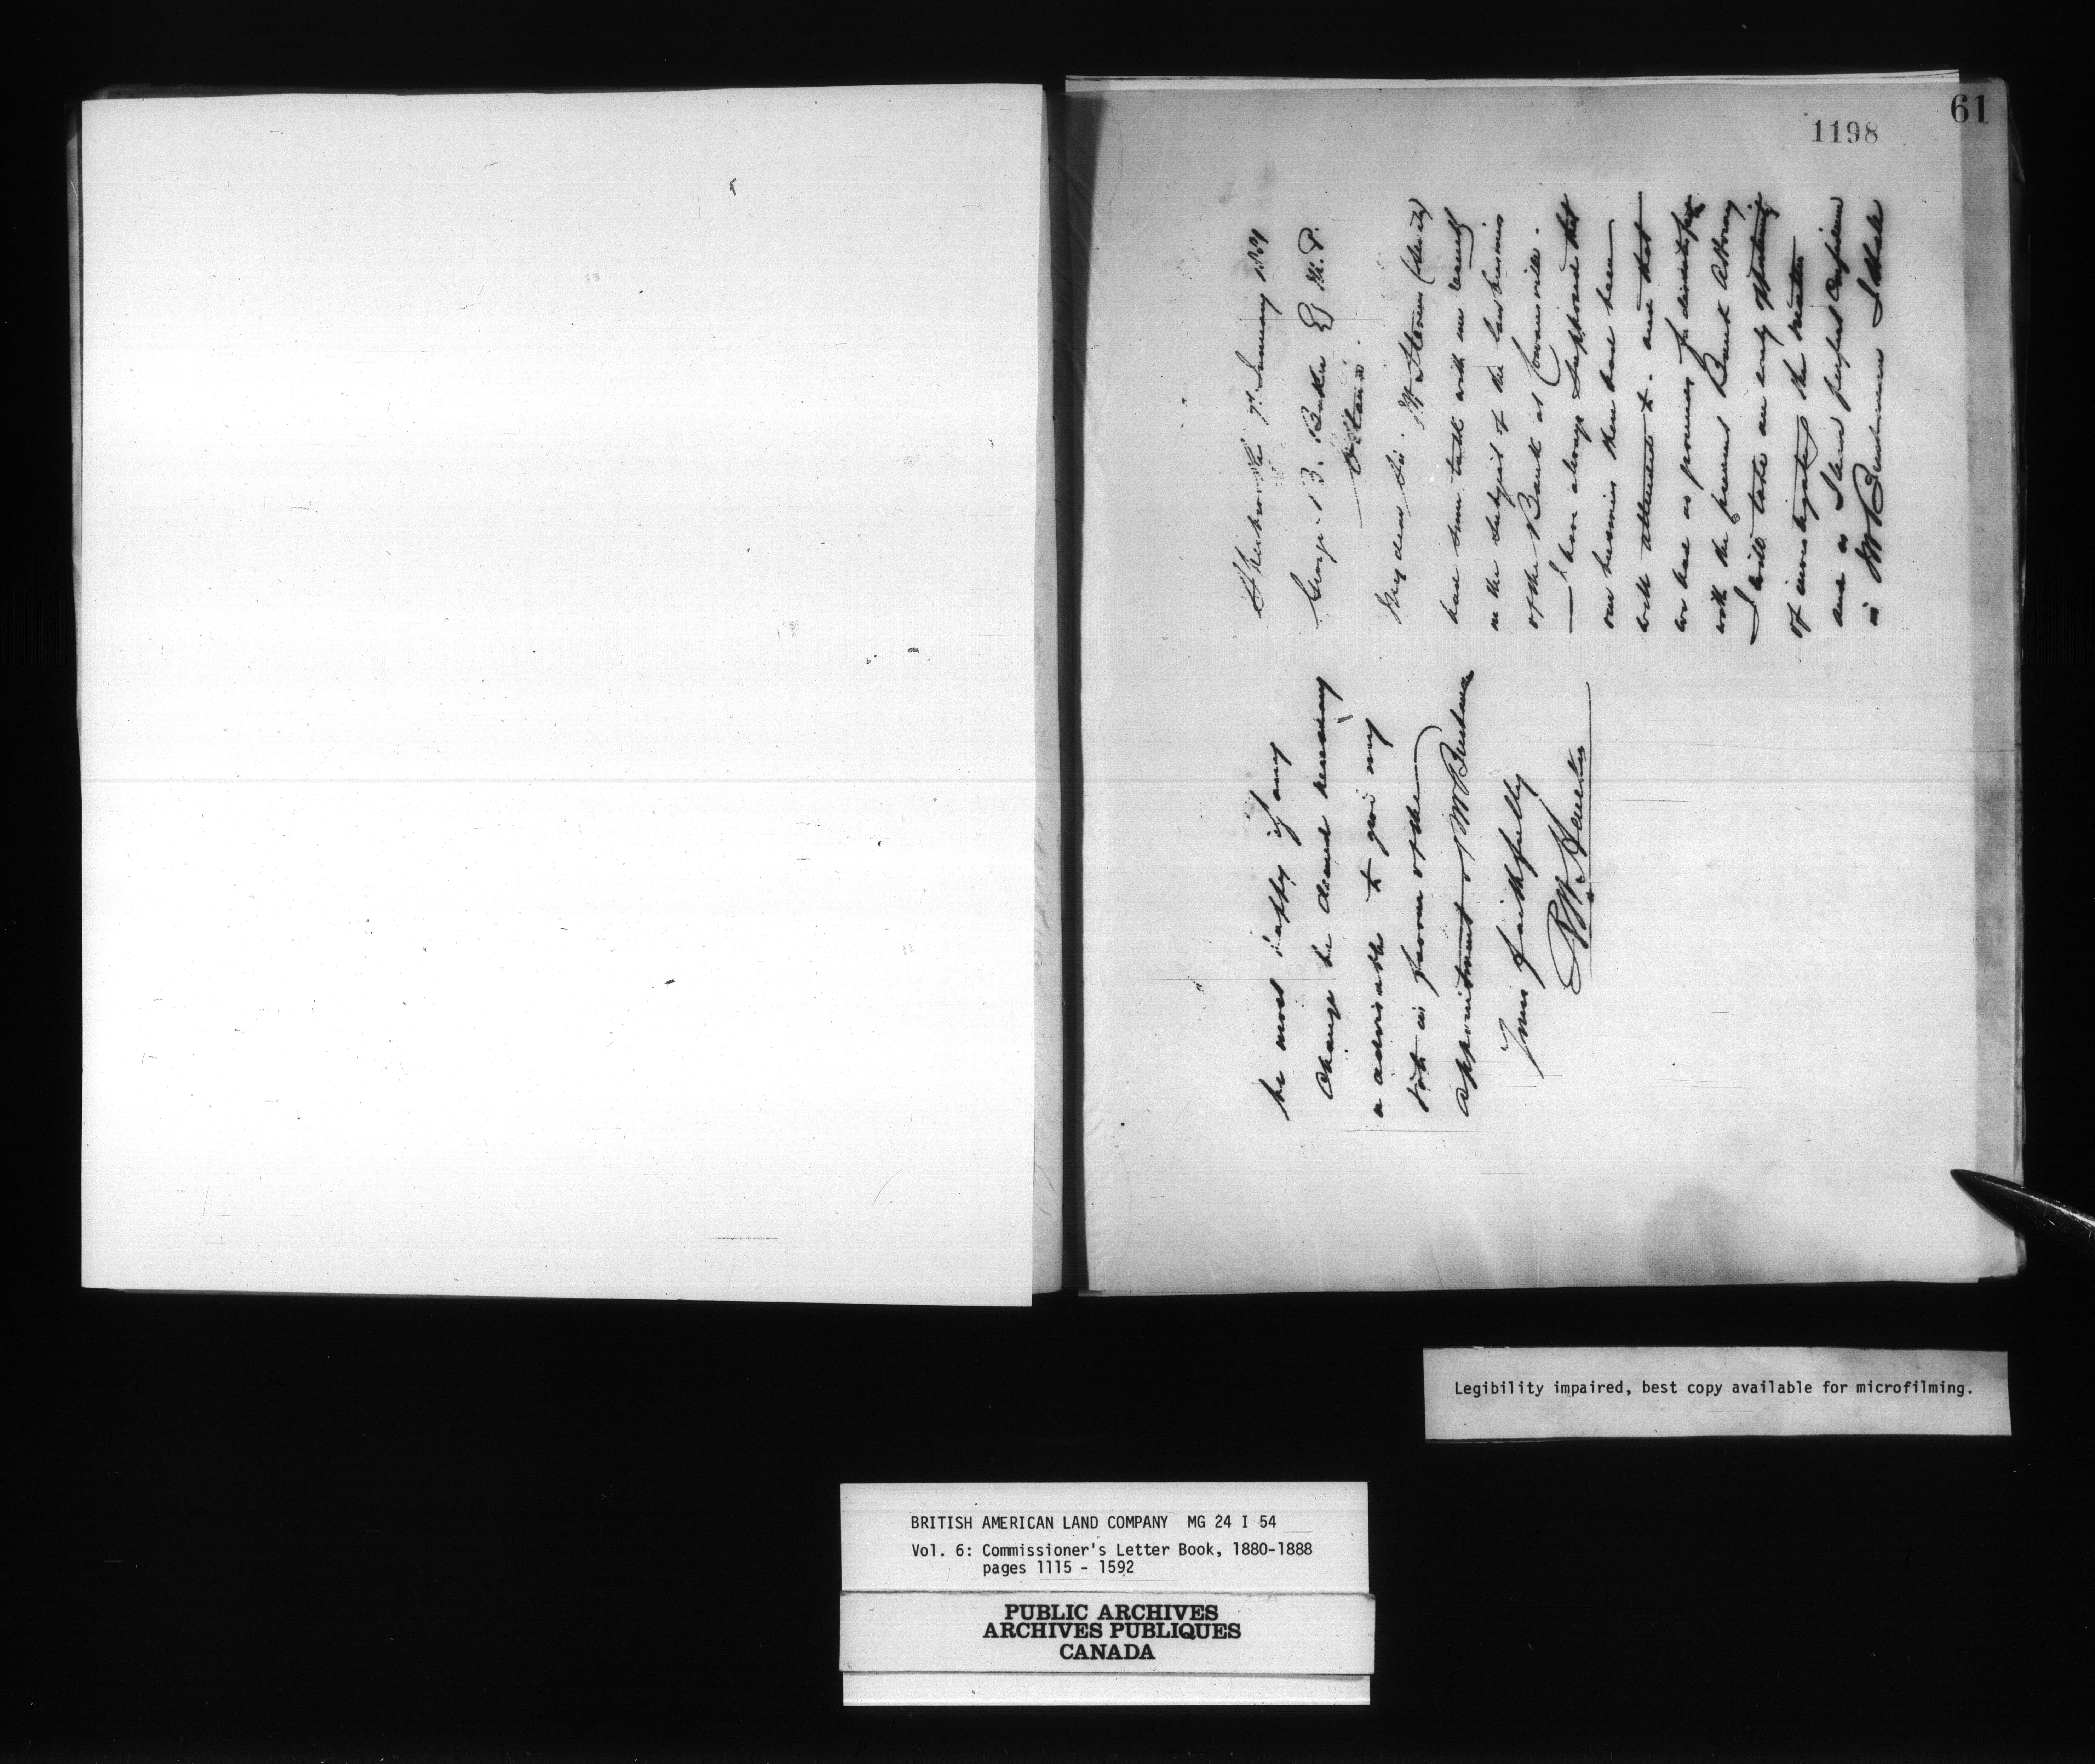 61
1198
Sherbrooke 7th January 1881
George B. Baker Esq M.P.
Ottawa
My dear Sir. Mr Stevens
have some talk with me
on the subject of the law business
of the Bank at Cowansville.
I have always supposed that
our business there had been
well attended to. and that
we had as
with the present Bank Attorney
I will take an early opportunity
of investigating the matter
and as I have perfect confidence
in Mr Buchanan I shall
be most happy if any
change be deemed necessary
or advisable to give my
vote in favor of the
appointment of Mr Buchanan
Yours faithfully
Legibility impaired, best copy available for microfilming.
BRITISH AMERICAN LAND COMPANY MG 24 I 54
Vol. 6: Commissioner's Letter Book, 1880-1888
pages 1115 - 1592
PUBLIC ARCHIVES
ARCHIVES PUBLIQUES
CANADA